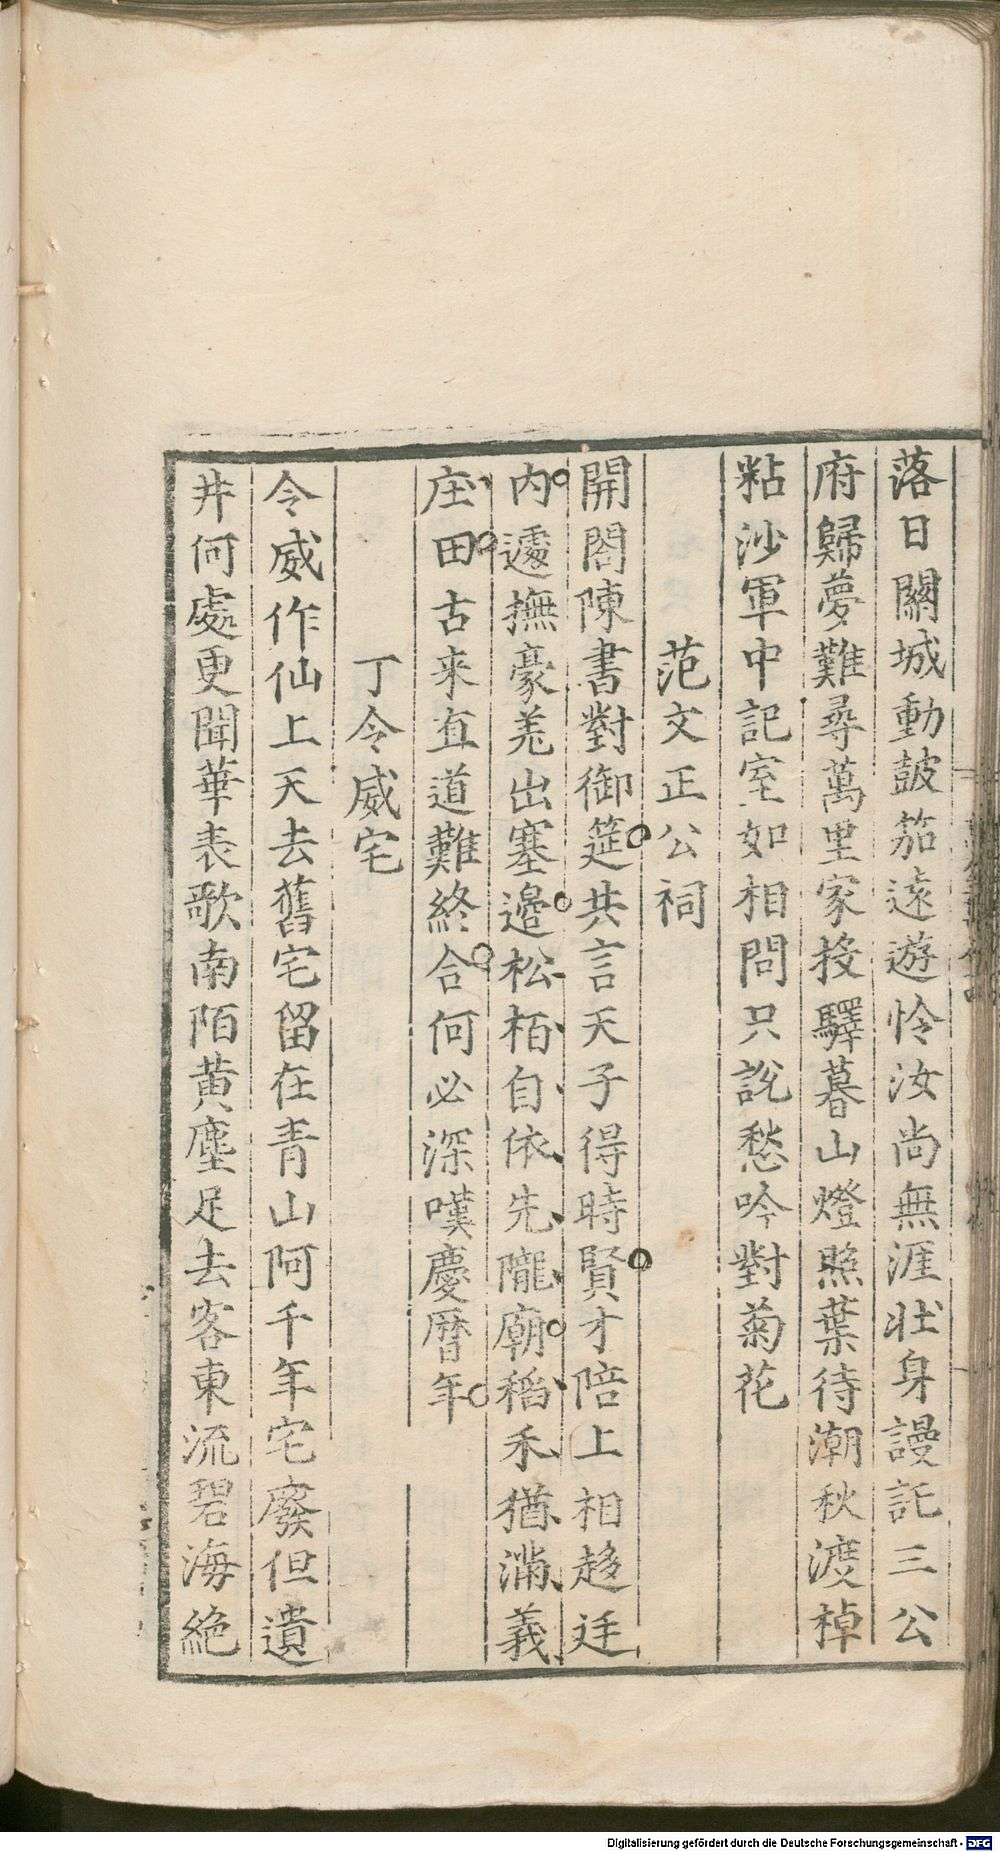 落日關城動鼓笳遠遊怜汝尚無涯壮身謾託三公
府歸夢難尋萬里家投驛暮山燈照葉待潮秋渡棹
粘沙軍中記室如相問只說愁吟對菊花
范文正公祠
開閤陳書對御筵共言天子得時賢才陪上相趍廷
内遽撫豪羌出塞邉松栢自依先隴廟稻禾猶滿義
庄田古来直道難終合何必深嘆慶暦年
丁令威宅
令威作仙上天去舊宅留在青山阿千年宅廢但遺
井何處更聞華表歌南陌黄塵足去客東流碧海絶
Digitalisierung gefördert durch die Deutsche Forschungsgemeinschaft - DFG